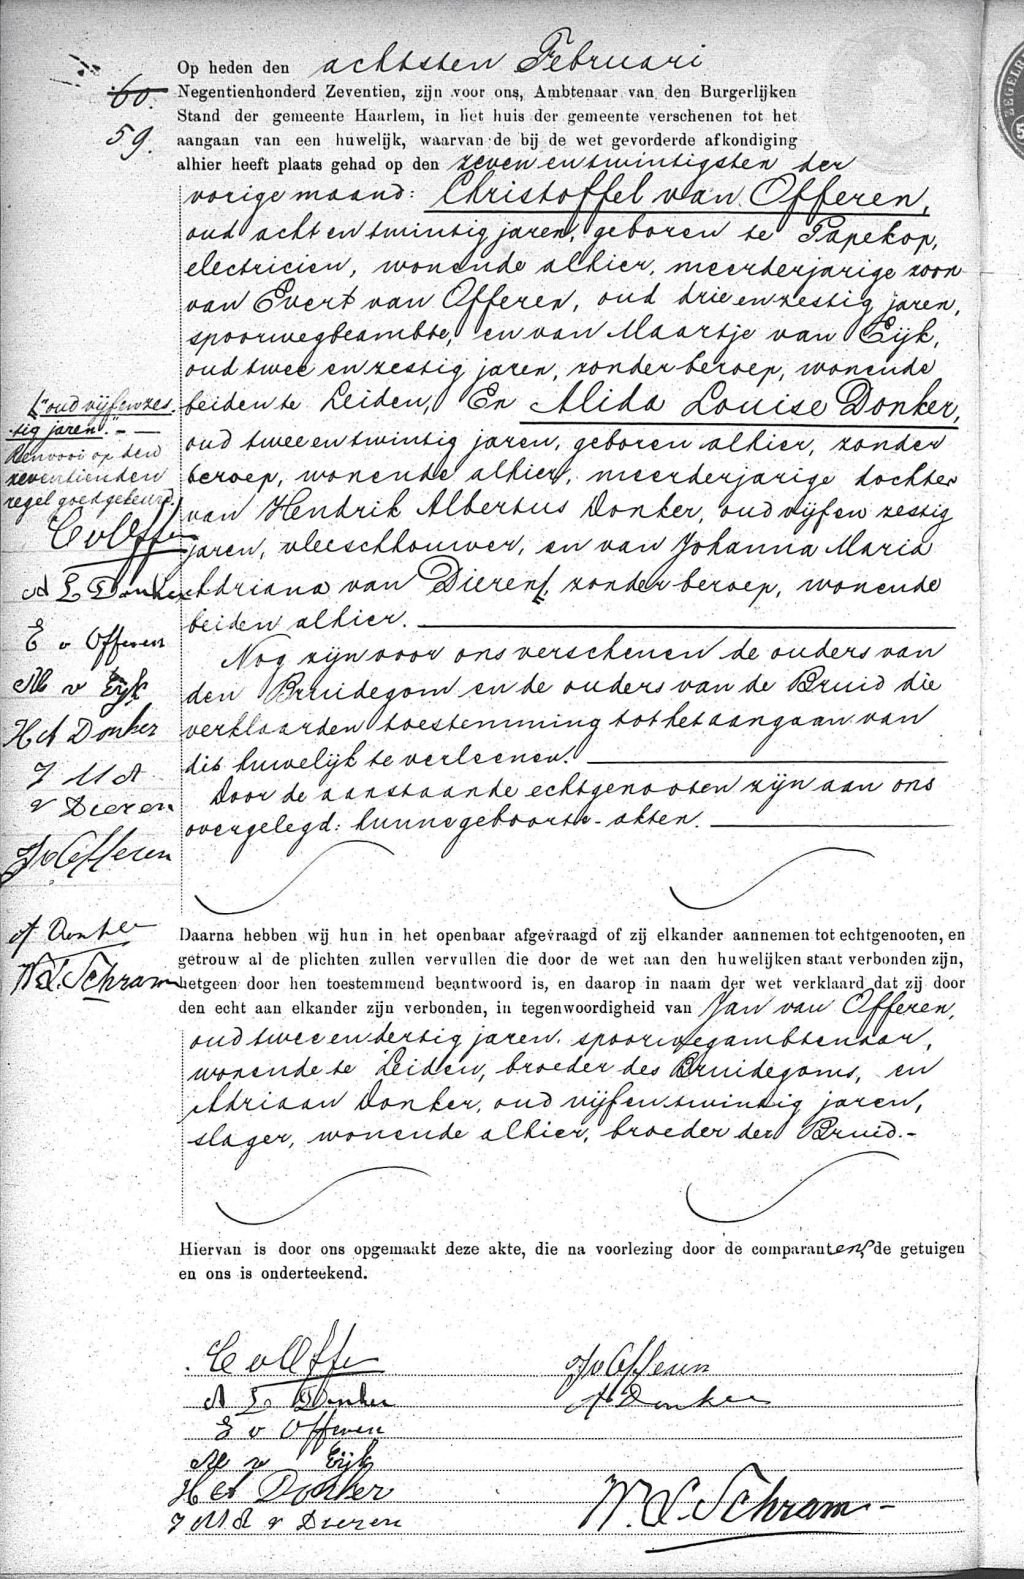 Op heden den achtsten Februari
60.
Negentienhonderd Zeventien, zijn voor ons, Ambtenaar van den Burgerlijken
Stand der gemeente Haarlem, in het huis der gemeente verschenen tot het
59.
aangaan van een huwelijk, waarvan de bij de wet gevorderde afkondiging
alhier heeft plaats gehad op den zeven en twintigsten der
vorige maand: Christoffel van Offeren,
oud acht en twintig jaren, geboren te Papekop,
electricien, wonende alhier, meerderjarige zoon
van Evert van Offeren, oud drie en zestig jaren,
spoorwegbeambte, en van Maartje van Eijk,
oud twee en zestig jaren, zonder beroep, wonende
beiden te Leiden, En Alida Louise Donker,
oud twee en twintig jaren, geboren alhier, zonder
beroep, wonende alhier, meerderjarige dochter
van Hendrik Albertus Donker, oud vijf en zestig
jaren, vleeschhouwer, en van Johanna Maria
Adriana van Dieren, zonder beroep, wonende
beiden alhier.
Nog zijn voor ons verschenen de ouders van
den Bruidegom en de ouders van de Bruid die
verklaarden toestemming tot het aangaan van
dit huwelijk te verleenen.
Door de aanstaande echtgenooten zijn aan ons
overgelegd: hunne geboorte-akten.
"oud vijf en zes
tig jaren."
Renvooi op den
zeventienden
regel goedgekeurd.
C v Offe
A L Donker
E v Offeren
M v Eijk
H A Donker
J M A
v Dieren
J v Offeren
A Donker
W. L. Schram
Daarna hebben wij hun in het openbaar afgevraagd of zij elkander aannemen tot echtgenooten, en
getrouw al de plichten zullen vervullen die door de wet aan den huwelijken staat verbonden zijn,
hetgeen door hen toestemmend beantwoord is, en daarop in naam der wet verklaard dat zij door
den echt aan elkander zijn verbonden, in tegenwoordigheid van Jan van Offeren,
oud twee en dertig jaren, spoorwegambtenaar,
wonende te Leiden, broeder des Bruidegoms, en
Adriaan Donker, oud vijf en twintig jaren,
slager, wonende alhier, broeder der Bruid.-
Hiervan is door ons opgemaakt deze akte, die na voorlezing door de comparanten, de getuigen
en ons is onderteekend.
C v Offe
J v Offeren
A L Donker
A Donker
E v Offeren
M v Eijk
H A Donker
W. L. Schram
J M A v Dieren
ZEGELR